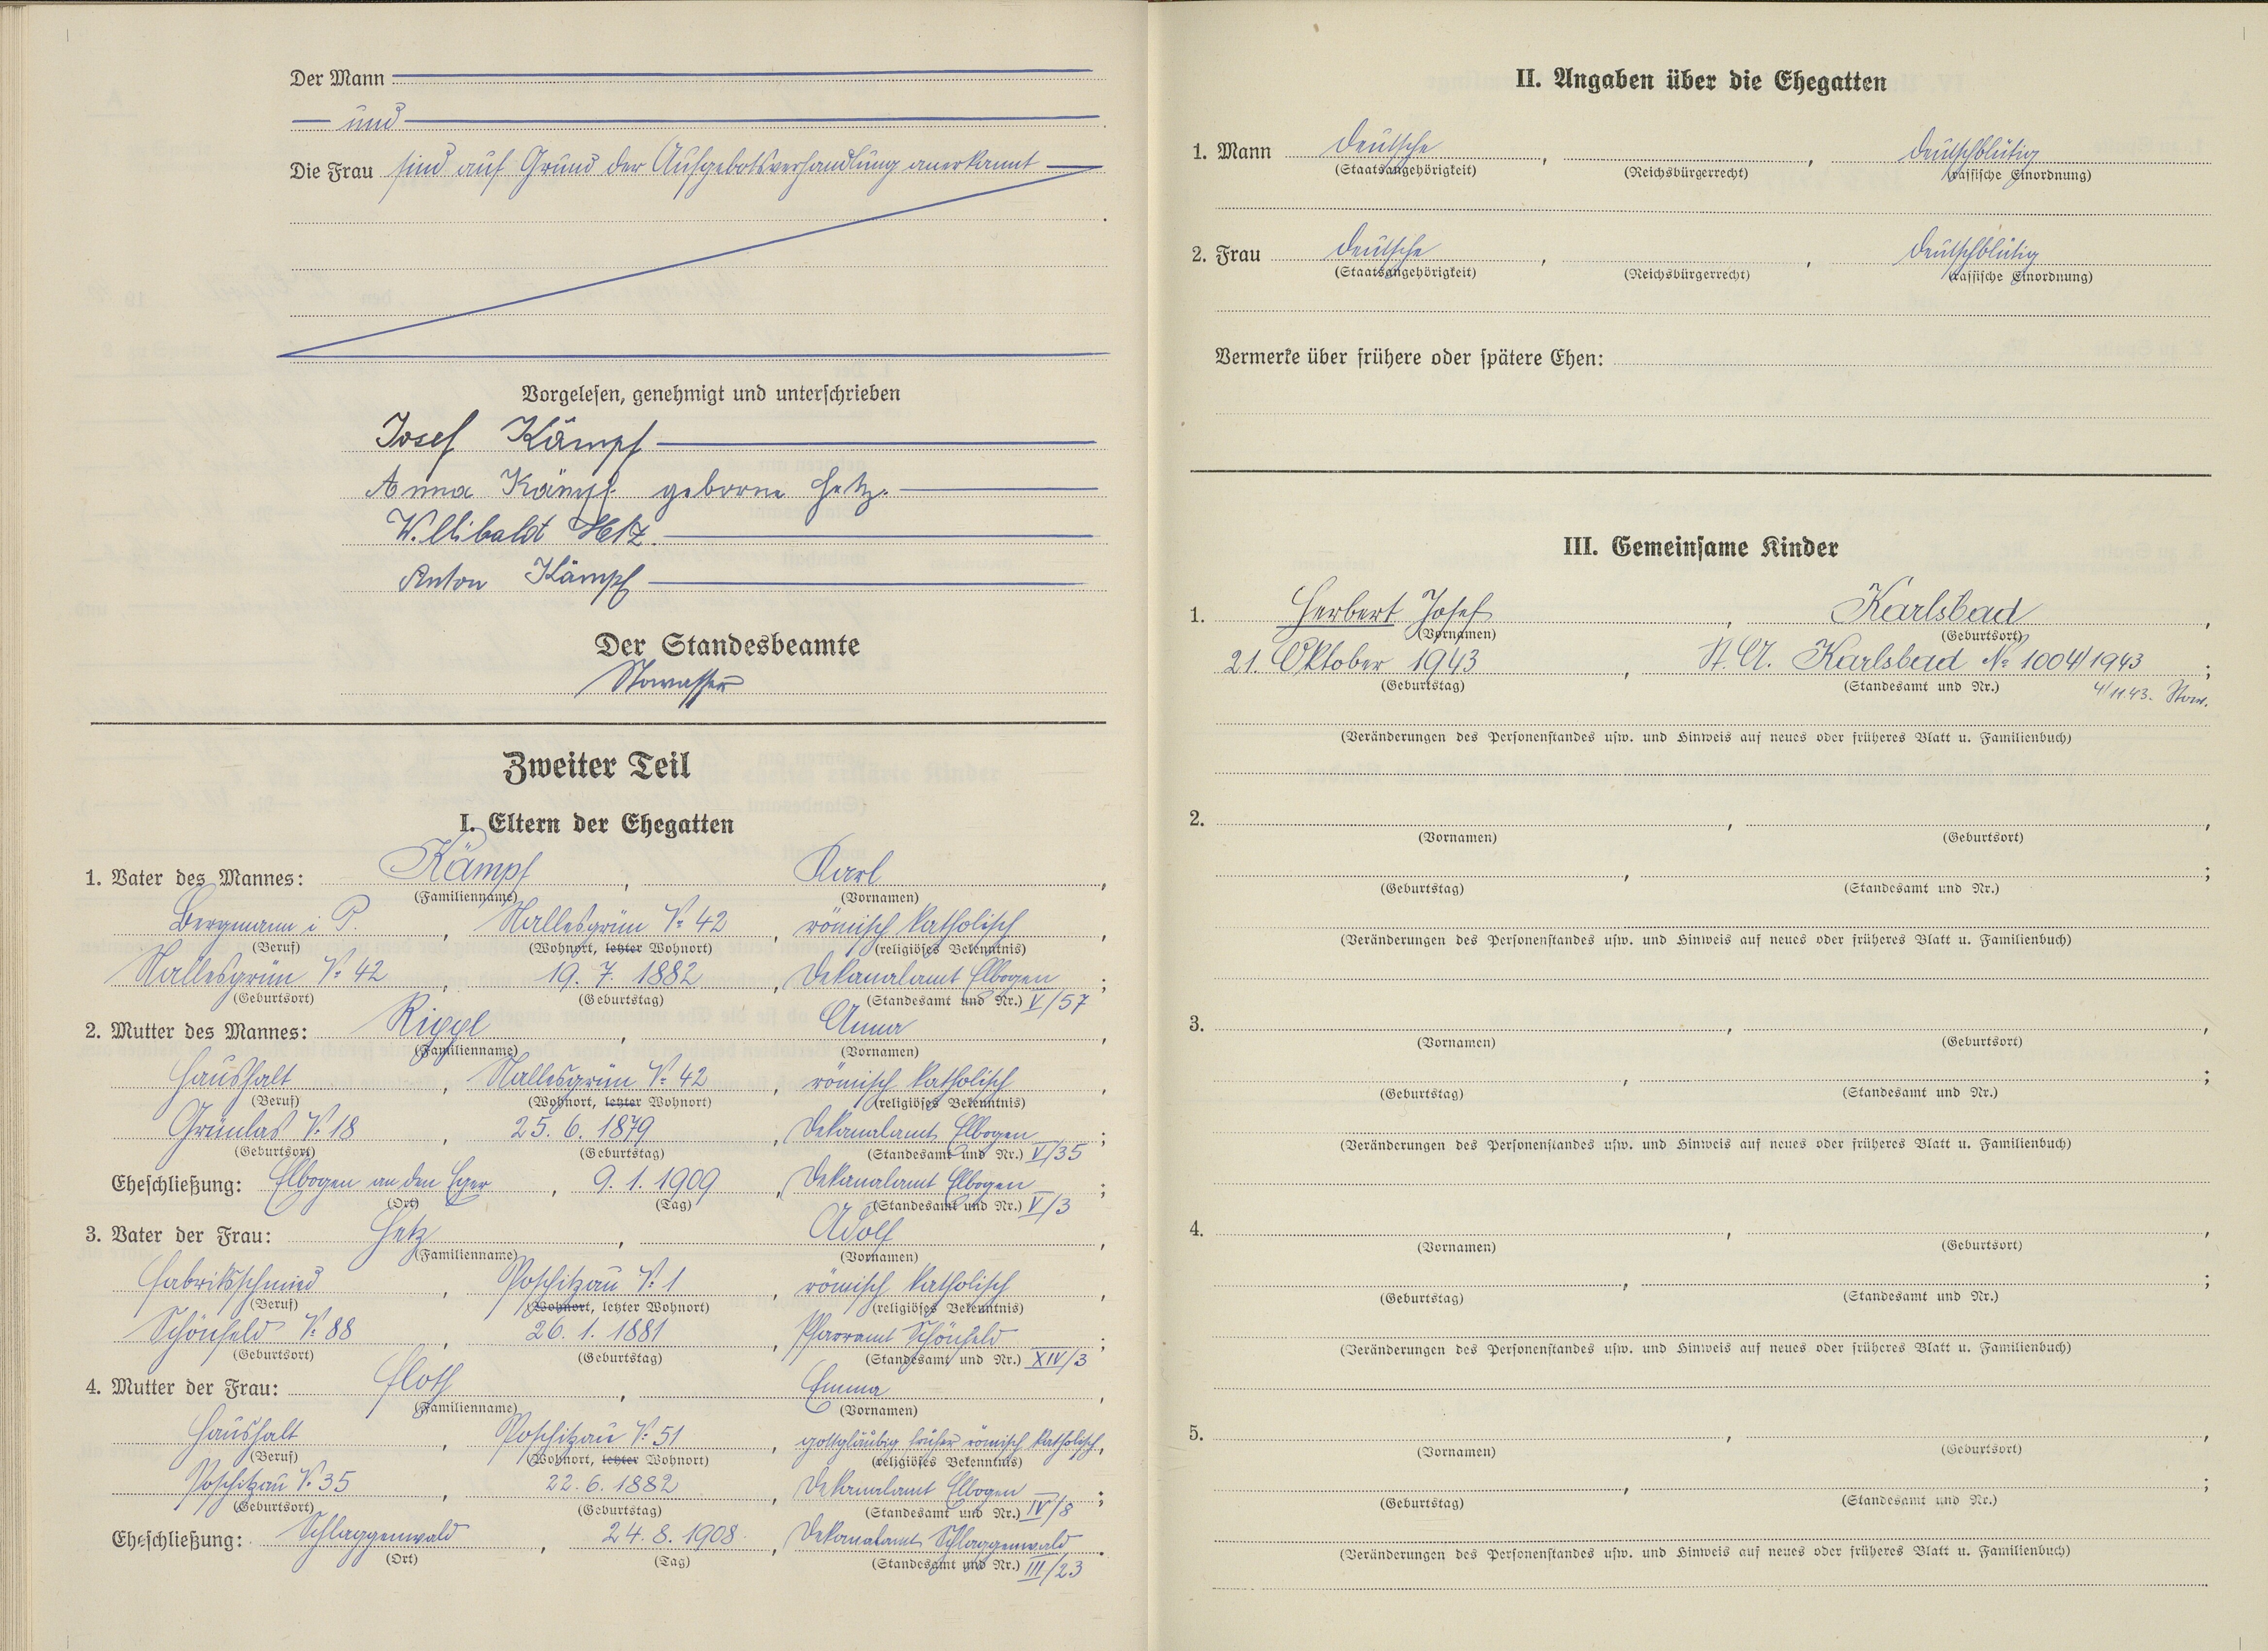 Der Mann
und
Die Frau sind auf Grund der Aufgebotsverhandlung anerkannt
Vorgelesen, genehmigt und unterschrieben
Josef Kämpf
Anna Kämpf geborne Hetz.
Willibald Hetz.
Anton Kämpf
Der Standesbeamte
Stowasser
Zweiter Teil
I. Eltern der Ehegatten
1. Vater des Mannes: Kämpf, Karl,
(Familienname) (Vornamen)
Bergmann i. P., Nallesgrün No 42, römisch katholisch,
(Beruf) (Wohnort, letzter Wohnort) (religiöses Bekenntnis)
Nallesgrün No 42, 19. 7. 1882, Dekanalamt Elbogen;
(Geburtsort) (Geburtstag) (Standesamt und Nr.) V/57
2. Mutter des Mannes: Rippl, Anna,
(Familienname) (Vornamen)
Haushalt, Nallesgrün No 42, römisch katholisch,
(Beruf) (Wohnort, letzter Wohnort) (religiöses Bekenntnis)
Grünlas No 18, 25. 6. 1879, Dekanalamt Elbogen;
(Geburtsort) (Geburtstag) (Standesamt und Nr.) V/35
Eheschließung: Elbogen an den Eger, 9. 1. 1909, Dekanalamt Elbogen;
(Ort) (Tag) (Standesamt und Nr.) V/3
3. Vater der Frau: Hetz, Adolf,
(Familienname) (Vornamen)
Fabriksschmied, Poschitzau No 1, römisch katholisch,
(Beruf) (Wohnort, letzter Wohnort) (religiöses Bekenntnis)
Schönfeld No 88, 26. 1. 1881, Pfarramt Schönfeld;
(Geburtsort) (Geburtstag) (Standesamt und Nr.) XIV/3
4. Mutter der Frau: Floth, Emma,
(Familienname) (Vornamen)
Haushalt, Poschitzau No 51, gottgläubig früher römisch katholisch,
(Beruf) (Wohnort, letzter Wohnort) (religiöses Bekenntnis)
Poschitzau No 35, 22. 6. 1882, Dekanalamt Elbogen;
(Geburtsort) (Geburtstag) (Standesamt und Nr.) IV/8
Eheschließung: Schlaggenwald, 24. 8. 1908, Dekanalamt Schlaggenwald.
(Ort) (Tag) (Standesamt und Nr.) III/23
II. Angaben über die Ehegatten
1. Mann Deutsche, , deutschblütig
(Staatsangehörigkeit) (Reichsbürgerrecht) (rassische Einordnung)
2. Frau Deutsche, , deutschblütig
(Staatsangehörigkeit) (Reichsbürgerrecht) (rassische Einordnung)
Vermerke über frühere oder spätere Ehen:
III. Gemeinsame Kinder
1. Herbert Josef, Karlsbad,
(Vornamen) (Geburtsort)
21. Oktober 1943, St. A. Karlsbad No 1004/1943;
(Geburtstag) (Standesamt und Nr.) 4/11.43. Stow.
(Veränderungen des Personenstandes usw. und Hinweis auf neues oder früheres Blatt u. Familienbuch)
2. , ,
(Vornamen) (Geburtsort)
, ;
(Geburtstag) (Standesamt und Nr.)
(Veränderungen des Personenstandes usw. und Hinweis auf neues oder früheres Blatt u. Familienbuch)
3. , ,
(Vornamen) (Geburtsort)
, ;
(Geburtstag) (Standesamt und Nr.)
(Veränderungen des Personenstandes usw. und Hinweis auf neues oder früheres Blatt u. Familienbuch)
4. , ,
(Vornamen) (Geburtsort)
, ;
(Geburtstag) (Standesamt und Nr.)
(Veränderungen des Personenstandes usw. und Hinweis auf neues oder früheres Blatt u. Familienbuch)
5. , ,
(Vornamen) (Geburtsort)
, ;
(Geburtstag) (Standesamt und Nr.)
(Veränderungen des Personenstandes usw. und Hinweis auf neues oder früheres Blatt u. Familienbuch)